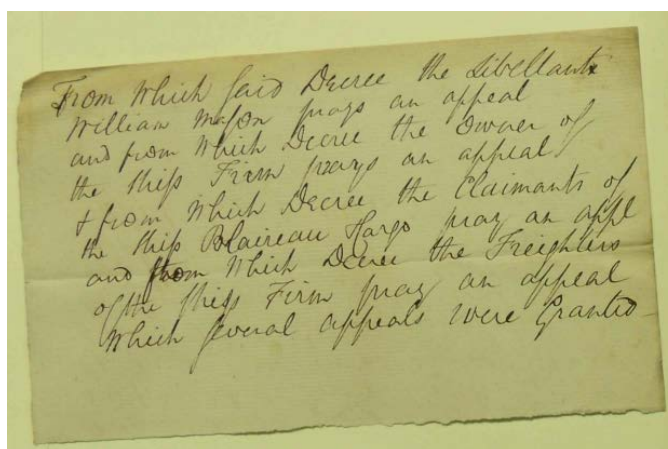 From Which said Decree the Libellant
William Mason prays an appeal
and from Which Decree the Owner of
the Ship Firm prays an appeal
& from Which Decree the Claimants of
the Ship Blaireau & Cargo pray an appl
and from Which Decree the Freighters
of the Ship Firm pray an appeal
Which several appeals were Granted